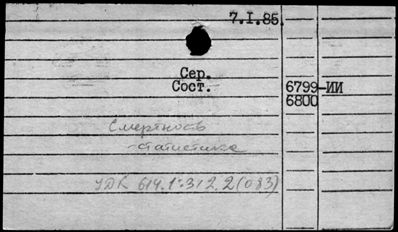 7.I.85.
Сер.
Сост.
6799-ИИ
6800
Смертность
-статистика
УДК 614.1:312.2(083)